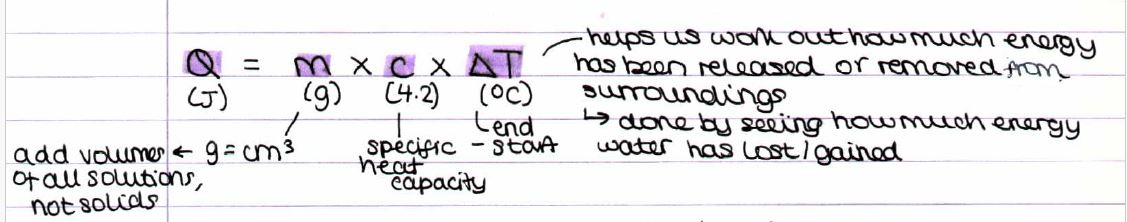 Q = m × c × ΔT
(J) (g) (4.2) (°C)
helps us work out how much energy
has been released or removed from
surroundings
↳ done by seeing how much energy
water has lost/gained
end
- start
specific
heat
capacity
add volumes ← g = cm³
of all solutions,
not solids